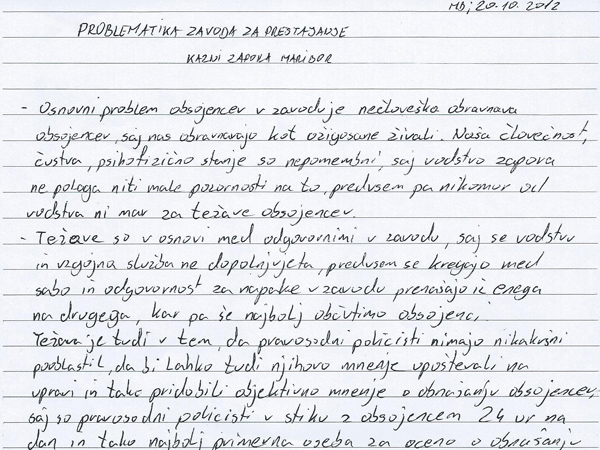 MB, 20.10.2012
PROBLEMATIKA ZAVODA ZA PRESTAJANJE
KAZNI ZAPORA MARIBOR
- Osnovni problem obsojencev v zavodu je nečloveška obravnava
obsojencev, saj nas obravnavajo kot ožigosane živali. Naša človečnost,
čustva, psihofizično stanje so nepomembni, saj vodstvo zapora
ne polaga niti male pozornosti na to, predvsem pa nikomur od
vodstva ni mar za težave obsojencev.
- Težave so v osnovi med odgovornimi v zavodu, saj se vodstvo
in vzgojna služba ne dopolnjujeta, predvsem se kregajo med
sabo in odgovornost za napake v zavodu prenašajo iz enega
na drugega, kar pa še najbolj občutimo obsojenci.
Težava je tudi v tem, da pravosodni policisti nimajo nikakršni
pooblastil, da bi lahko tudi njihovo mnenje upoštevali na
upravi in tako pridobili objektivno mnenje o obnašanju obsojencev,
saj so pravosodni policisti v stiku z obsojencem 24 ur na
dan in tako najbolj primerna oseba za oceno o obnašanju